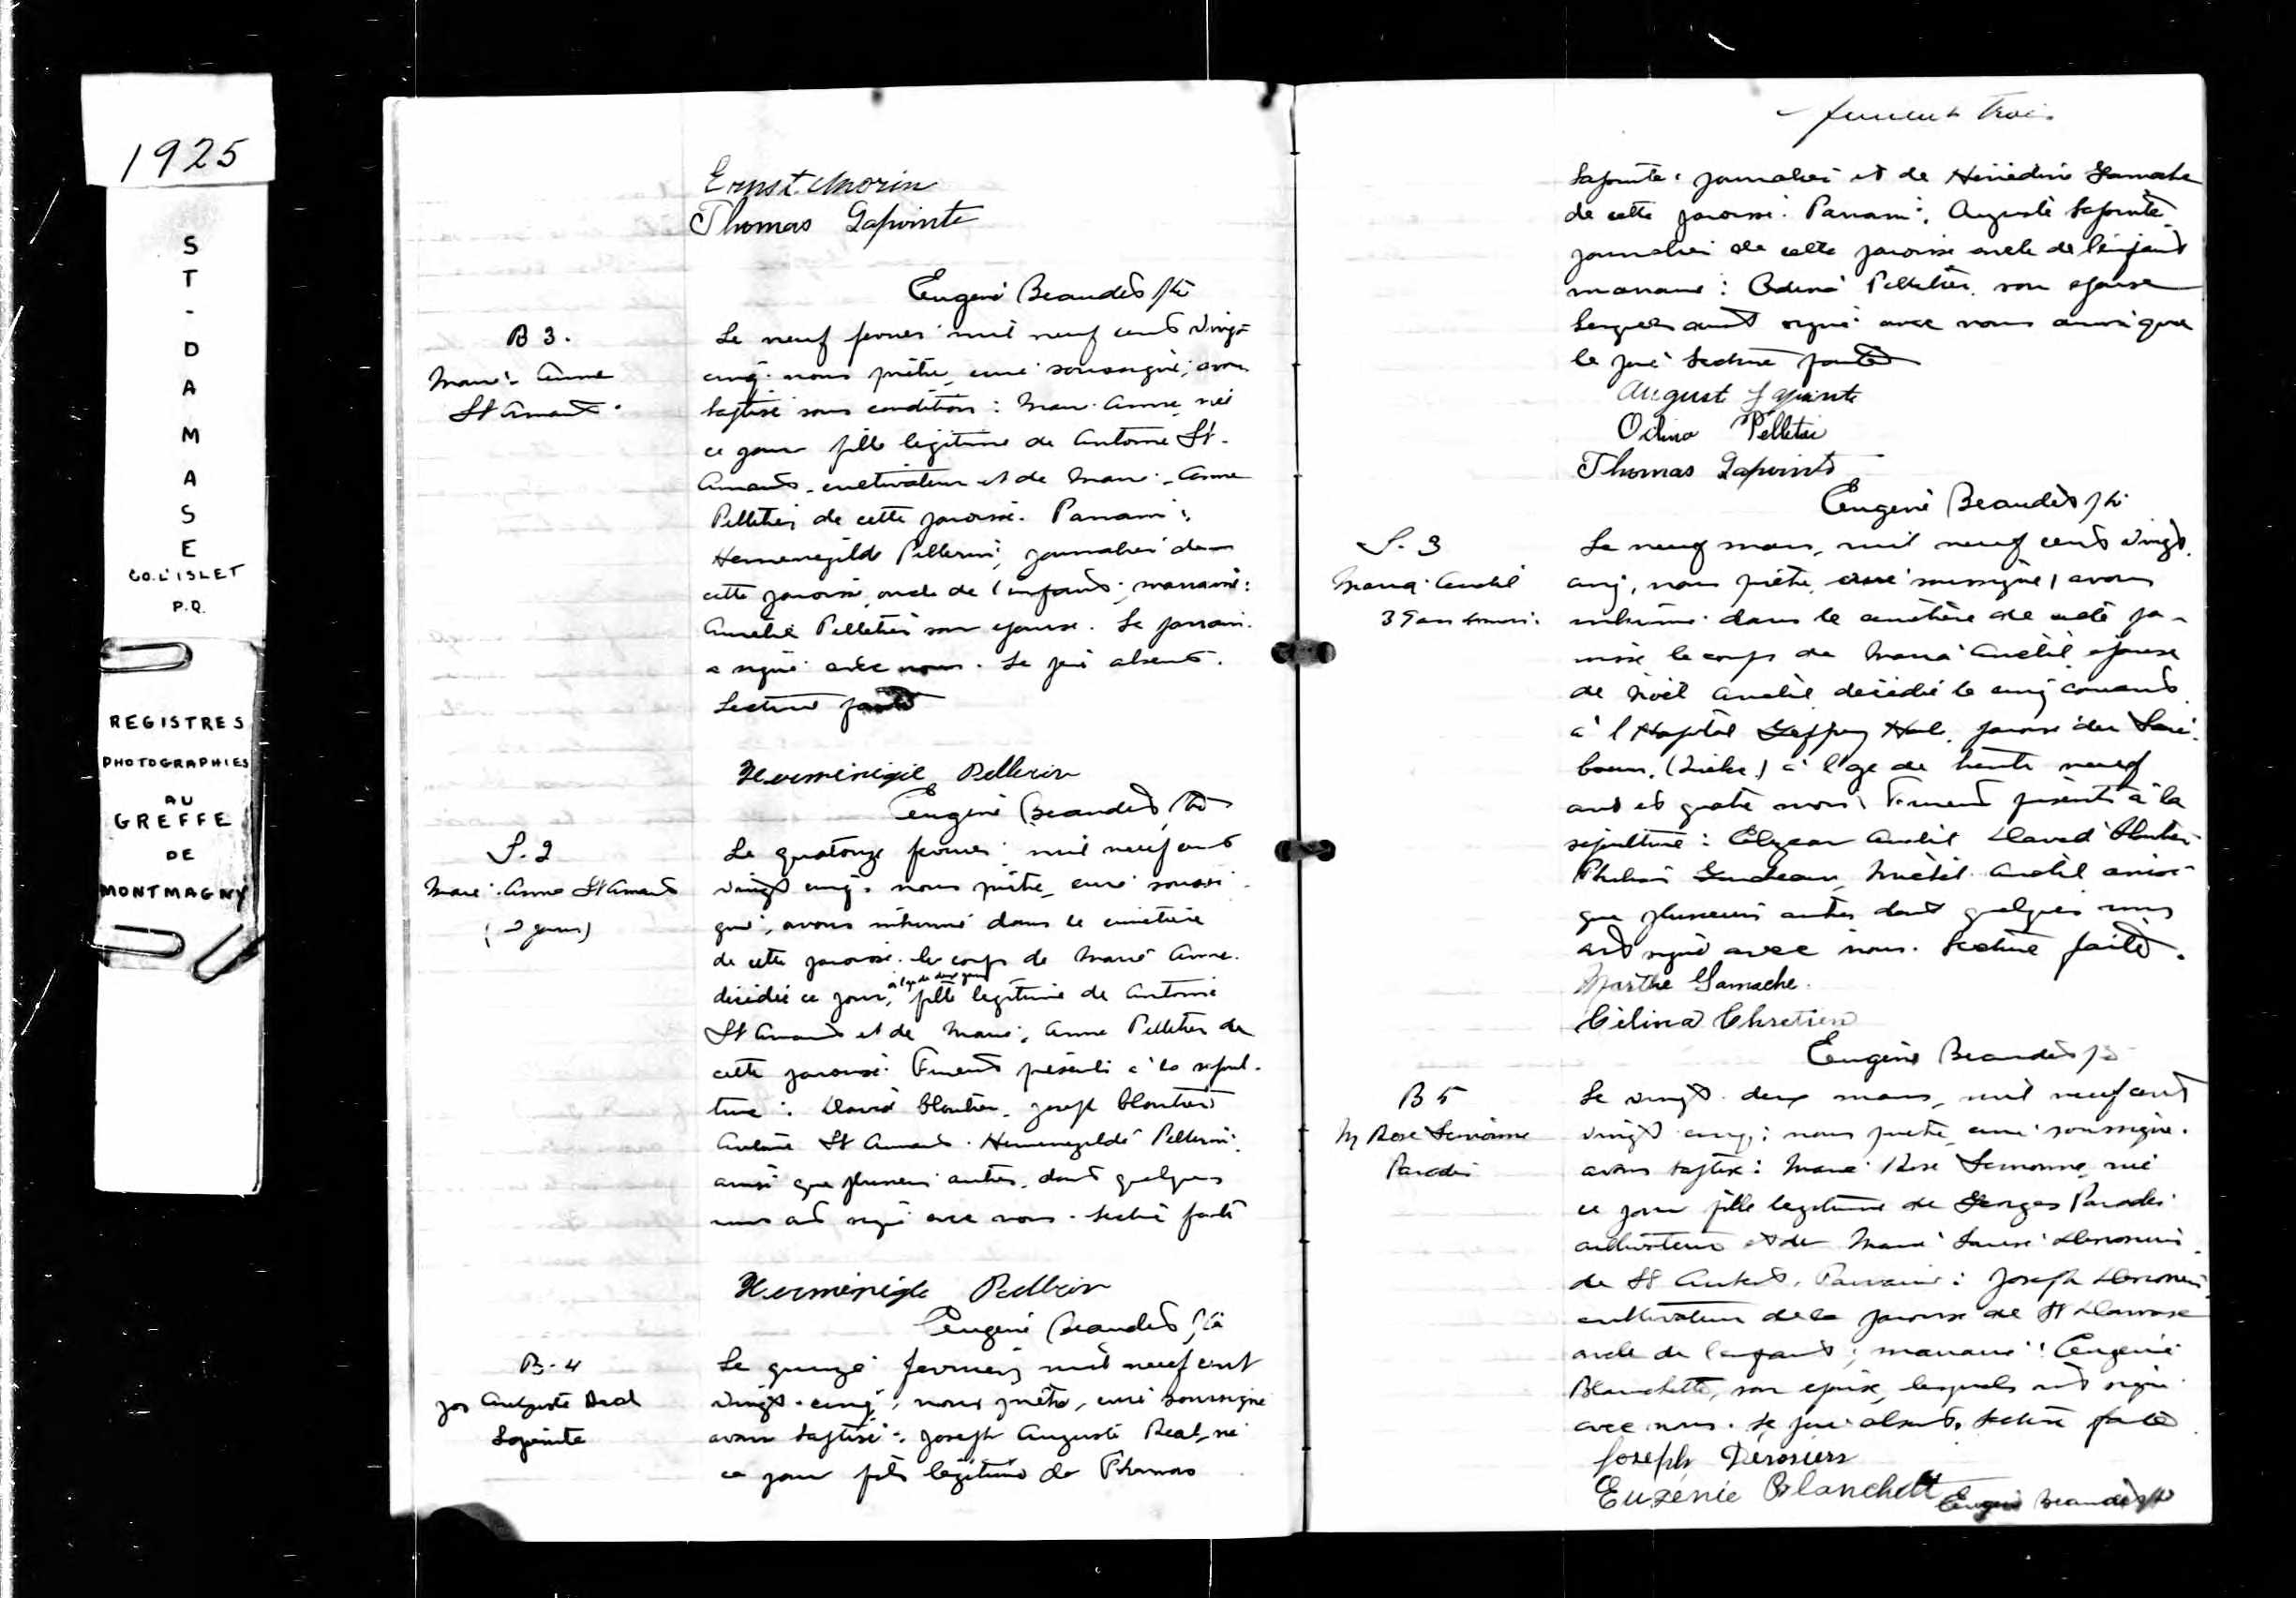 1925
ST-DAMASE
CO. L'ISLET
P.Q.
REGISTRES
PHOTOGRAPHIES
AU
GREFFE
DE
MONTMAGNY
Ernst Morin
Thomas Lapointe
Eugène Beaudet ptre
B 3.
Marie-Anne
St Amant.
Le neuf février mil neuf cent vingt
cinq nous prêtre curé soussigné, avons
baptisé sous condition : Marie Anne née
ce jour fille légitime de Antoine St-
Amant, cultivateur et de Marie-Anne
Pelletier de cette paroisse. Parrain :
Herménégilde Pellerin, journalier de
cette paroisse, oncle de l'enfant ; marraine :
Aurélie Pelletier son épouse. Le parrain
a signé avec nous. Le père absent.
Lecture faite
Herménégile Pellerin
Eugène Beaudet ptre
S. 2
Marie-Anne St Amant
(2 jours)
Le quatorze février mil neuf cent
vingt cinq, nous prêtre, curé soussi-
gné, avons inhumé dans le cimetière
de cette paroisse le corps de Marie Anne
décédée ce jour, à l'âge de deux jours fille légitime de Antoine
St Amant et de Marie, Anne Pelletier de
cette paroisse. Furent présents à la sépul-
ture : David Cloutier, Joseph Cloutier
Antoine St Amant. Herménégilde Pellerin,
ainsi que plusieurs autres, dont quelques
uns ont signé avec nous. Lecture faite
Herménégile Pellerin
Eugène Beaudet ptre
B-4
Jos Auguste Réal
Lapointe
Le quinze février mil neuf cent
vingt-cinq, nous prêtre, curé soussigné
avons baptisé : Joseph Auguste Réal, né
ce jour fils légitime de Thomas
feuillet trois
Lapointe, journalier et de Gamache
de cette paroisse. Parrain : Auguste Lapointe
journalier de cette paroisse oncle de l'enfant
marraine : Odina Pelletier, son épouse
lesquels ont signé avec nous ainsi que
le père Lecture faite
August Lapointe
Odina Pelletier
Thomas Lapointe
Eugène Beaudet ptre
S. 3
Maria Anctil
39 ans 4 mois.
Le neuf mars, mil neuf cent vingt
cinq, nous prêtre, curé soussigné, avons
inhumé dans le cimetière de cette pa-
roisse le corps de Maria Anctil épouse
de Noël Anctil décédée le cinq courant
à l'Hopital Jeffery Hale, paroisse du Sacré-
Coeur, (Québec) à l'âge de trente neuf
ans et quatre mois. Furent présents à la
sépulture : Elzear Anctil David Cloutier
Anctil ainsi
que plusieurs autres dont quelques uns
ont signé avec nous. Lecture faite.
Marthe Gamache.
Célina Chretien
Eugène Beaudet ptre
B 5
M Rose
Paradis
Le vingt-deux mars, mil neuf cent
vingt cinq ; nous prêtre curé soussigné.
avons baptisé : Marie Rose née
ce jour fille légitime de Georges Paradis
cultivateur et de Marie Louise Desrosiers
de St Aubert. Parrain : Joseph Desrosiers
cultivateur de la paroisse de St Damase
oncle de l'enfant ; marraine : Eugénie
Blanchette, son épouse, lesquels ont signé
avec nous. Le père absent. Lecture faite
Joseph Derosiers
Eugénie Blanchett
Eugène Beaudet ptre